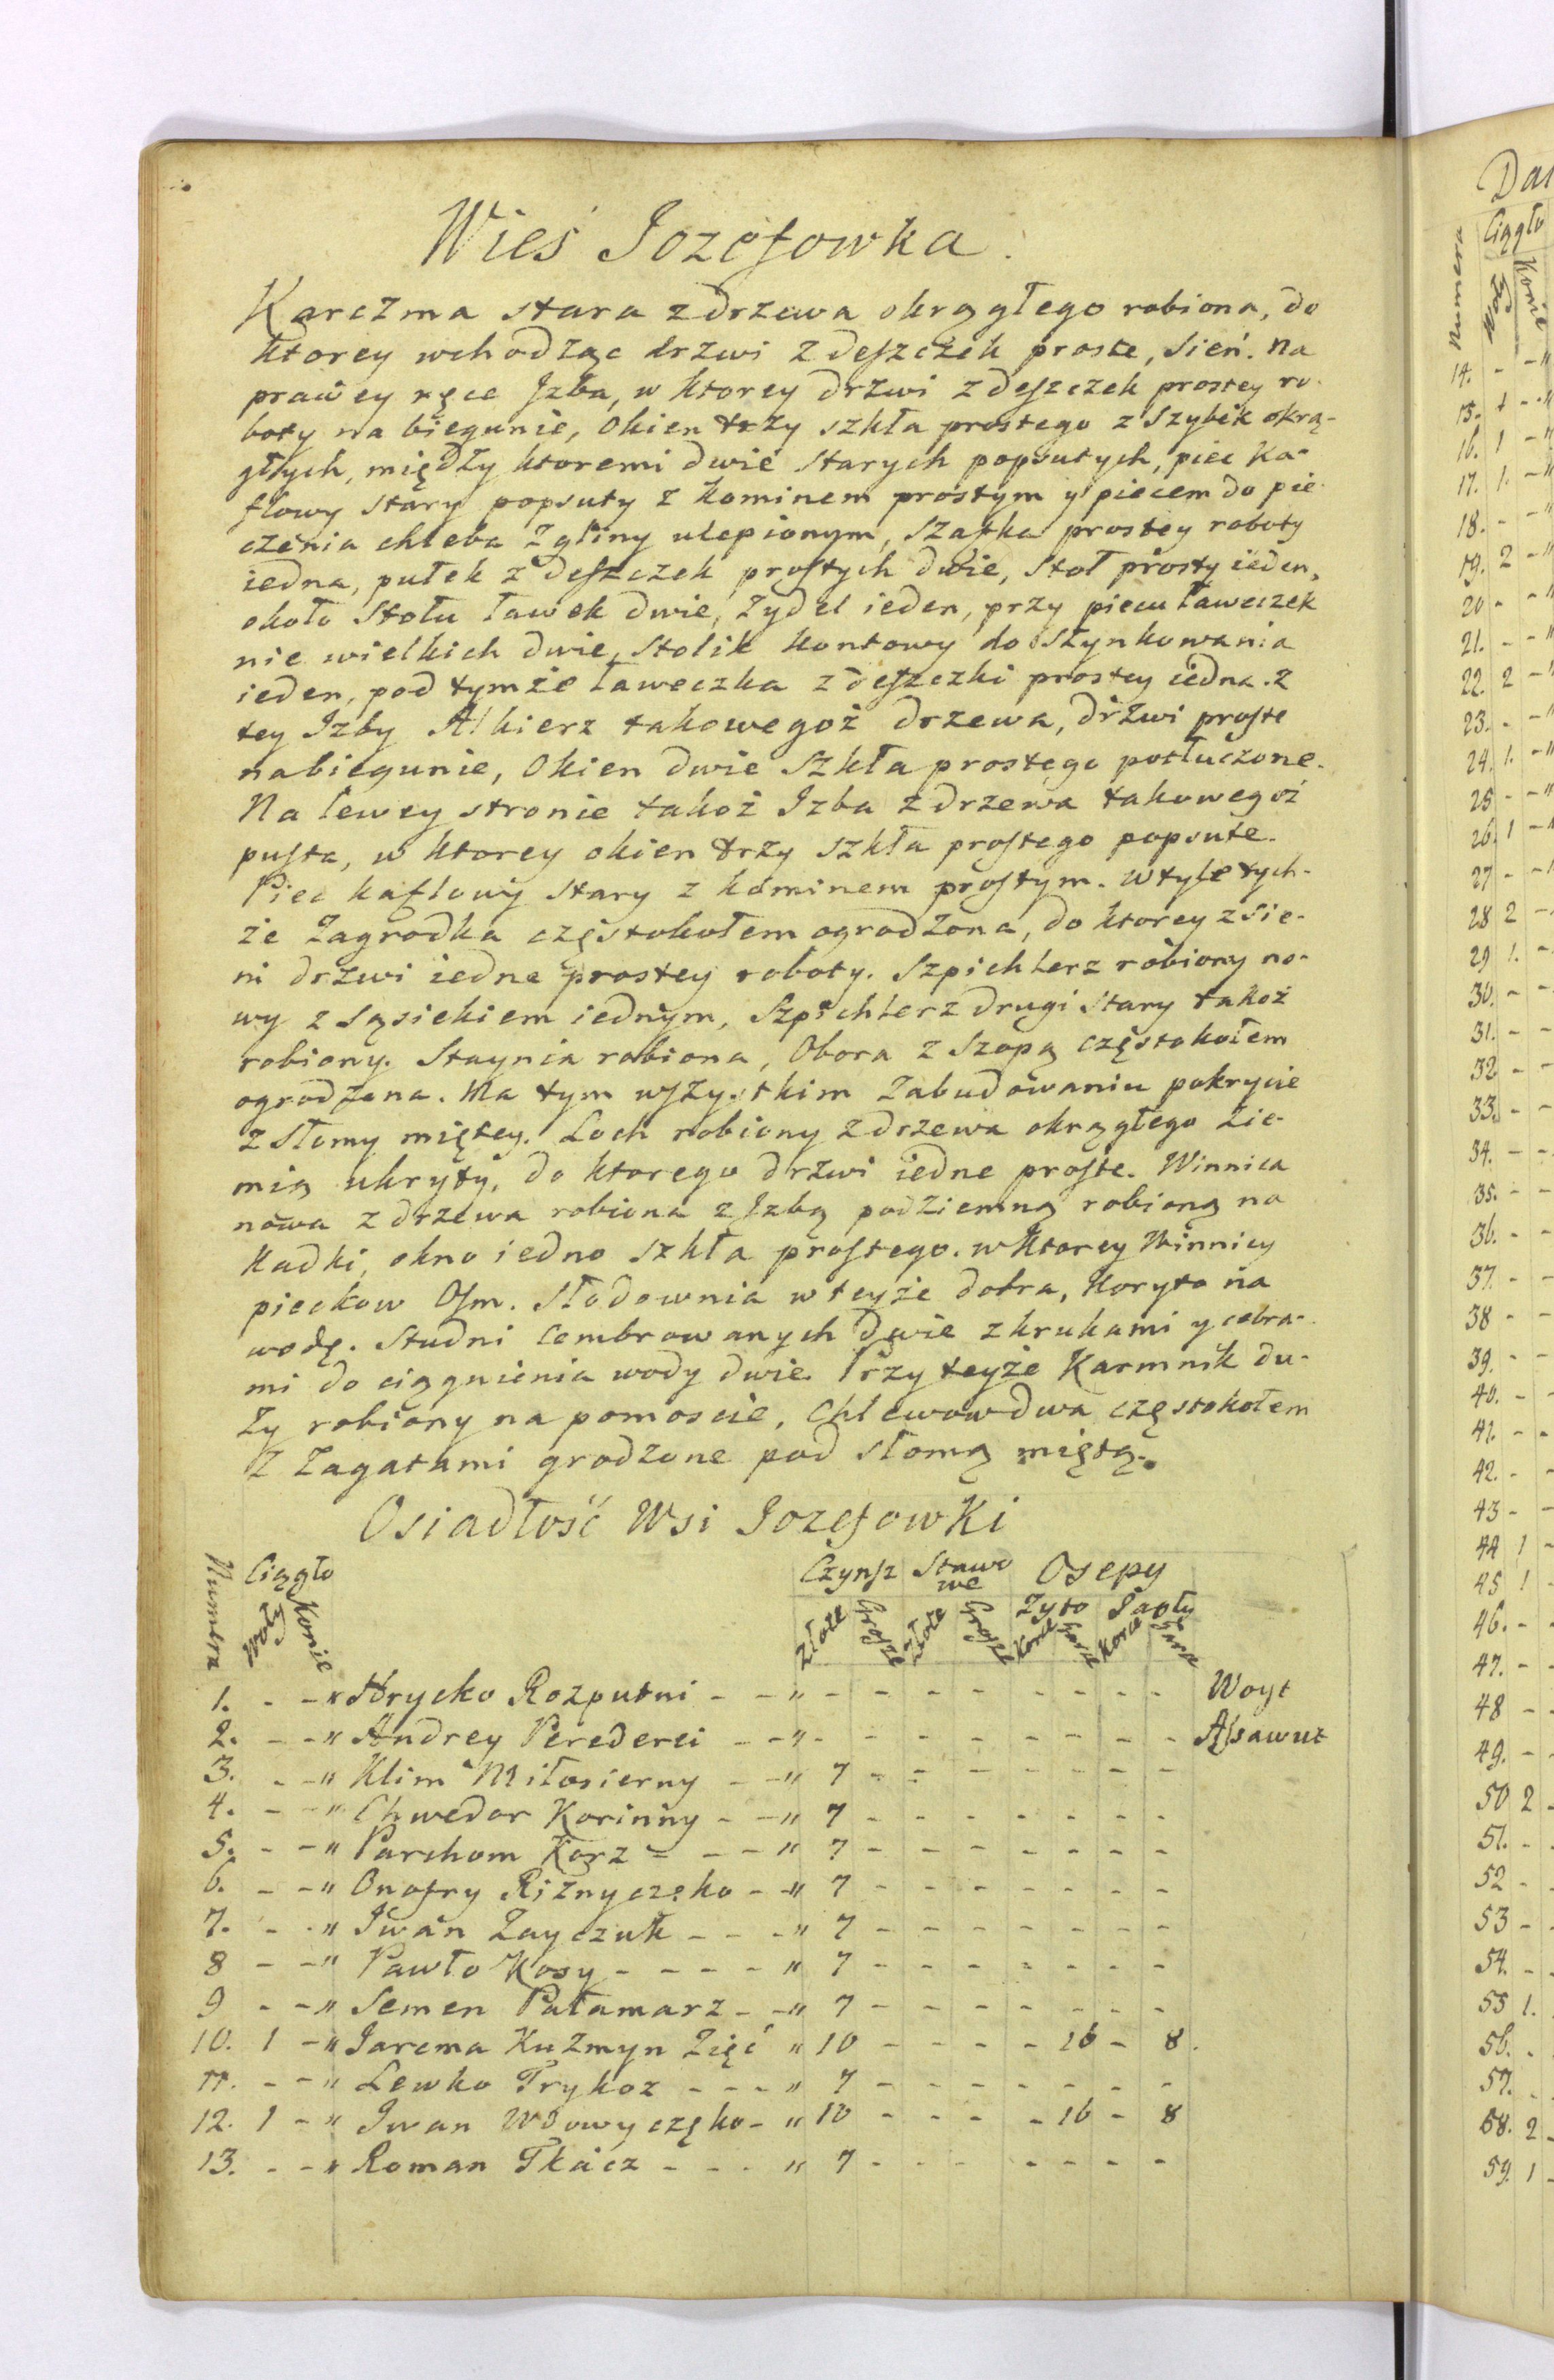 Wieś Jozefowka.
Karczma stara z drzewa okrągłego robiona, do
ktorey wchodząc drzwi z deszczek proste, Sień. Na
prawey ręce Jzba, w ktorey drzwi z deszczek prostey ro-
boty na biegunie, Okien trzy szkła prostego z Szybek okrą-
głych, między ktoremi dwie starych popsutych, piec Ka-
flowy stary popsuty z kominem prostym y piecem do pie-
czenia chleba z gliny ulepionym, Szafka prostey roboty
iedna, pułek z deszczek prostych dwie, Stoł prosty ieden,
około Stołu ławek dwie, Zydel ieden, przy piecu ławeczek
nie wielkich dwie, Stolik kontowy do szynkowania
ieden, pod tymże ławeczka z deszczki prostey iedna. Z
tey Izby Alkierz takowegoż drzewa, drzwi proste
na biegunie, Okien dwie Szkła prostego potłuczone.
Na lewey stronie takoż Izba z drzewa takowegoż
pusta, w ktorey okien trzy szkła prostego popsute.
Piec kaflowy stary z kominem prostym. W tyle tych-
że Zagrodka częstokołem ogrodzona, do ktorey z sie-
ni drzwi iedne prostey roboty. Szpichlerz robiony no-
wy z Sąsiekiem iednym, Szpichlerz drugi stary takoż
robiony. Staynia robiona, Obora z Szopą częstokołem
ogrodzona. Na tym wszystkim Zabudowaniu pokrycie
z Słomy miętey. Loch robiony z drzewa okrągłego Zie-
mią ukryty, do ktorego drzwi iedne proste. Winnica
nowa z drzewa robiona z Jzbą podziemną robioną na
Kadki, okno iedno szkła prostego. w Ktorey Winnicy
pieckow Osm. Słodownia w teyże dobra, Koryto na
wodę. Studni cembrowanych dwie z krukami y cebra-
mi do ciągnienia wody dwie. Przy teyże Karmnik du-
ży robiony na pomoscie, Chlewow dwa częstokołem
z Zagatami grodzone pod słomą miętą.
Osiadłość Wsi Jozefowki
Numera Ciągło Woły Konie Czynsz Złote Grosze Stawo we Złote Grosze Osepy Zyto Korce Garce Korce Garce
1. - - " Hrycko Rozputni - - " - - - - - - - - Woyt
2. - - " Andrey Perederei - - " - - - - - - - - Assawuł
3. - - " Klim Miłosierny - - " 7 - - - - - - -
4. - - " Chwedor Korinny - - " 7 - - - - - - -
5. - - " Parchom Korz - - - " 7 - - - - - - -
6. - - " Onofry Riznyczęko - - " 7 - - - - - - -
7. - - " Iwan Zayczuk - - - " 7 - - - - - - -
8 - - " Pawło Kosy - - - - " 7 - - - - - - -
9 - - " Semen Pałamarz - - " 7 - - - - - - -
10. 1 - " Jarema Kuzmyn Zięć " 10 - - - - 16 - 8.
11. - - " Lewko Trykoz - - - " 7 - - - - - - -
12. 1 - " Jwan Wdowyczęko - " 10 - - - - 16 - 8
13. - - " Roman Tkacz - - - " 7 - - - - - - -
Numera
Ciągło
Woły Konie
14. - - "
15. 1 - "
16. 1 - "
17. 1. - "
18. - - "
19. 2 - "
20 - - "
21. - - "
22. 2 - "
23. - - "
24. 1. - "
25 - - "
26. 1 - "
27 - -
28 2 -
29 1. -
30. - -
31. - -
32 - -
33. - -
34. - -
35. - -
36. - -
37. - -
38 - -
39. - -
40. -
41. - -
42. -
43 -
44 1 -
45 1 -
46. - -
47. - -
48 - -
49. - -
50 2 -
51. - -
52 - -
53 - -
54. - -
55 1.
56. -
57. -
58. 2 -
59. 1 -